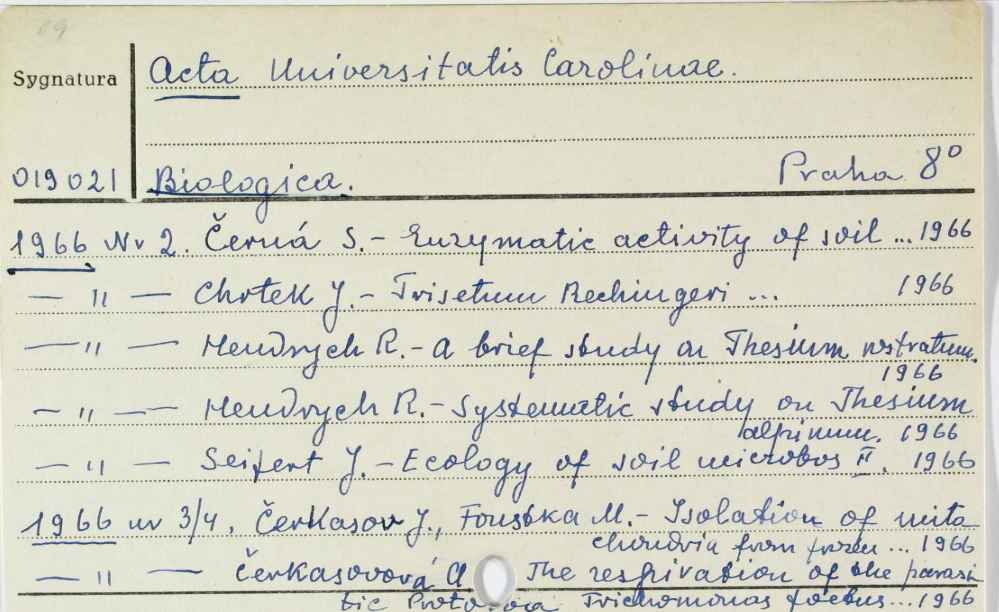 69
Sygnatura Acta Universitatis Carolinae.
019021 Biologica. Praha 8⁰
1966 Nr 2. Černá S. - Enzymatic activity of soil ... 1966
— " — Chrtek J. - Trisetum Rechingeri ... 1966
— " — Hendrych R. - A brief study on Thesium rostratum.
1966
— " — Hendrych R. - Systematic study on Thesium
alpinum. 1966
— " — Seifert J. - Ecology of soil microbos II. 1966
1966 nr 3/4. Čerkasov J., Foustka M. - Isolation of mito
chondria from frozen ... 1966
— " — Čerkasovová A The respiration of the parasi
tic Protozoa Trichomonas foetus ... 1966